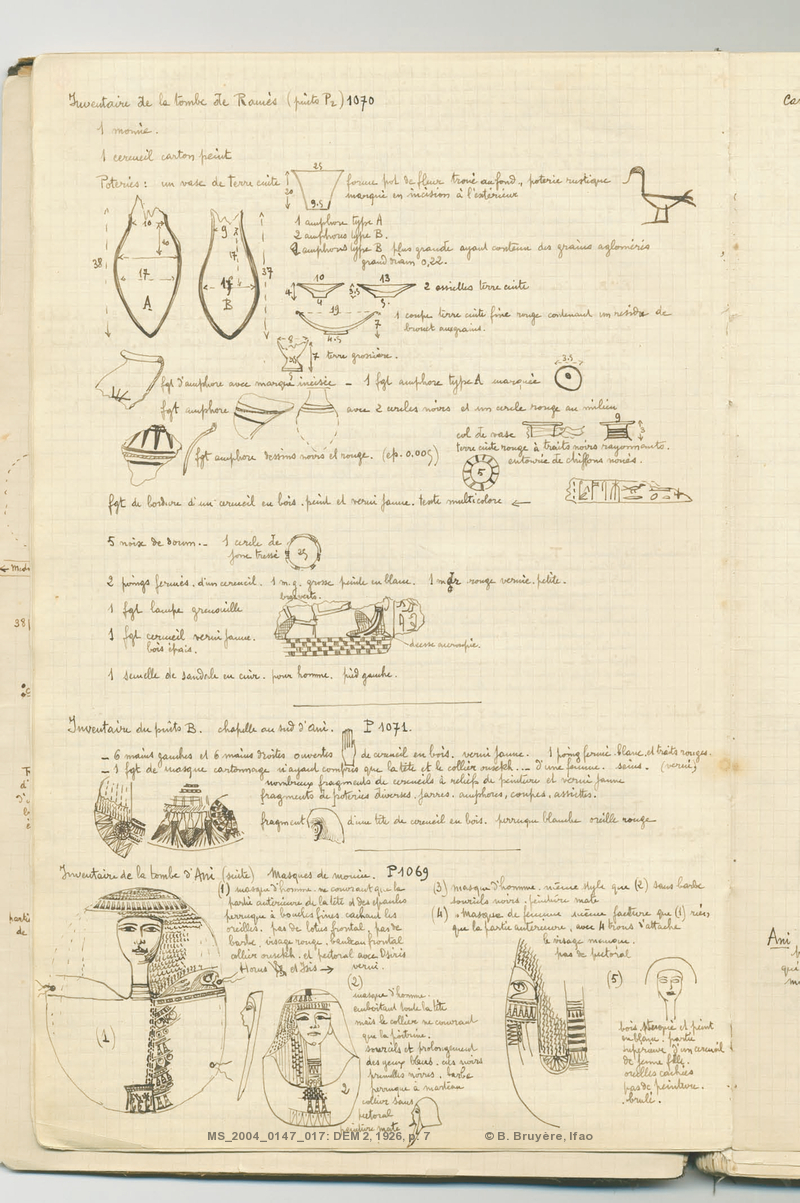 Inventaire de la tombe de Ramès (puits P2) 1070
1 momie.
1 cercueil carton peint
Poteries : un vase de terre cuite
25
20
9.5
forme pot de fleur troué au fond., poterie rustique
marqué en incision à l'extérieur
1 amphore type A
2 amphores type B.
amphores type B plus grande ayant contenu des grains agglomérés
grand diam 0,22.
38
10
17
A
9
17
B
37
10
4
13
5.5
2 assiettes terre cuite
19
7
4.5
1 coupe terre cuite fine rouge contenant un résidu de
brouet aux grains.
8
7 terre grossière.
fgt d'amphore avec marque incisée — 1 fgt amphore type A marquée
3.5
fgt amphore avec 2 cercles noirs et un cercle rouge au milieu
col de vase
9
3
terre cuite rouge à traits noirs rayonnants.
fgt amphore dessins noirs et rouge. (ep. 0.005)
5
entourée de chiffons noués.
fgt de bordure d'un cercueil en bois. peint et verni jaune. texte multicolore ←
5 noix de doum. — 1 cercle de
jonc tressé
25
2 poings fermés. d'un cercueil. 1 m.g. grosse peinte en blanc. 1 m.dr. rouge vernie. petite.
bras verts.
1 fgt lampe grenouille
1 fgt cercueil verni jaune.
bois épais.
déesse accroupie.
1 semelle de sandale en cuir. pour homme. pied gauche.
Inventaire du puits B. chapelle au sud d'Ani. P 1071.
— 6 mains gauches et 6 mains droites ouvertes de cercueil en bois. verni jaune. 1 poing fermé. blanc et traits rouges.
— 1 fgt de masque cartonnage n'ayant compris que la tête et le collier ousekh. — d'une femme. seins. (verni)
nombreux fragments de cercueils à reliefs de peinture et verni jaune
fragments de poteries diverses. jarres. amphores, coupes, assiettes.
fragment d'une tête de cercueil en bois. perruque blanche oreille rouge
Inventaire de la tombe d'Ani (suite) Masques de momie. P1069
(1) masque d'homme. ne couvrant que la
partie antérieure de la tête et des épaules
perruque à boucles fines cachant les
oreilles. pas de lotus frontal, pas de
barbe. visage rouge. bandeau frontal
collier ousekh. et pectoral avec Osiris
Horus et Isis → verni.
1
(2)
masque d'homme.
emboîtant toute la tête
mais le collier ne couvrant
que la poitrine.
sourcils et prolongement
des yeux bleus. cils noirs
prunelles noires. barbe
perruque à marteau
collier sans
pectoral
peinture mate
2
(3) masque d'homme. même style que (2) sans barbe
sourcils noirs. peinture mate
(4) masque de femme même facture que (1)
que la partie antérieure, avec 4 trous d'attache
le visage manque.
pas de pectoral
(5)
bois stuqué et peint
en blanc. partie
supérieure d'un cercueil
de jeune fille.
oreilles cachées
pas de peinture.
brulé.
Ani
MS_2004_0147_017: DEM 2, 1926, p. 7 © B. Bruyère, Ifao